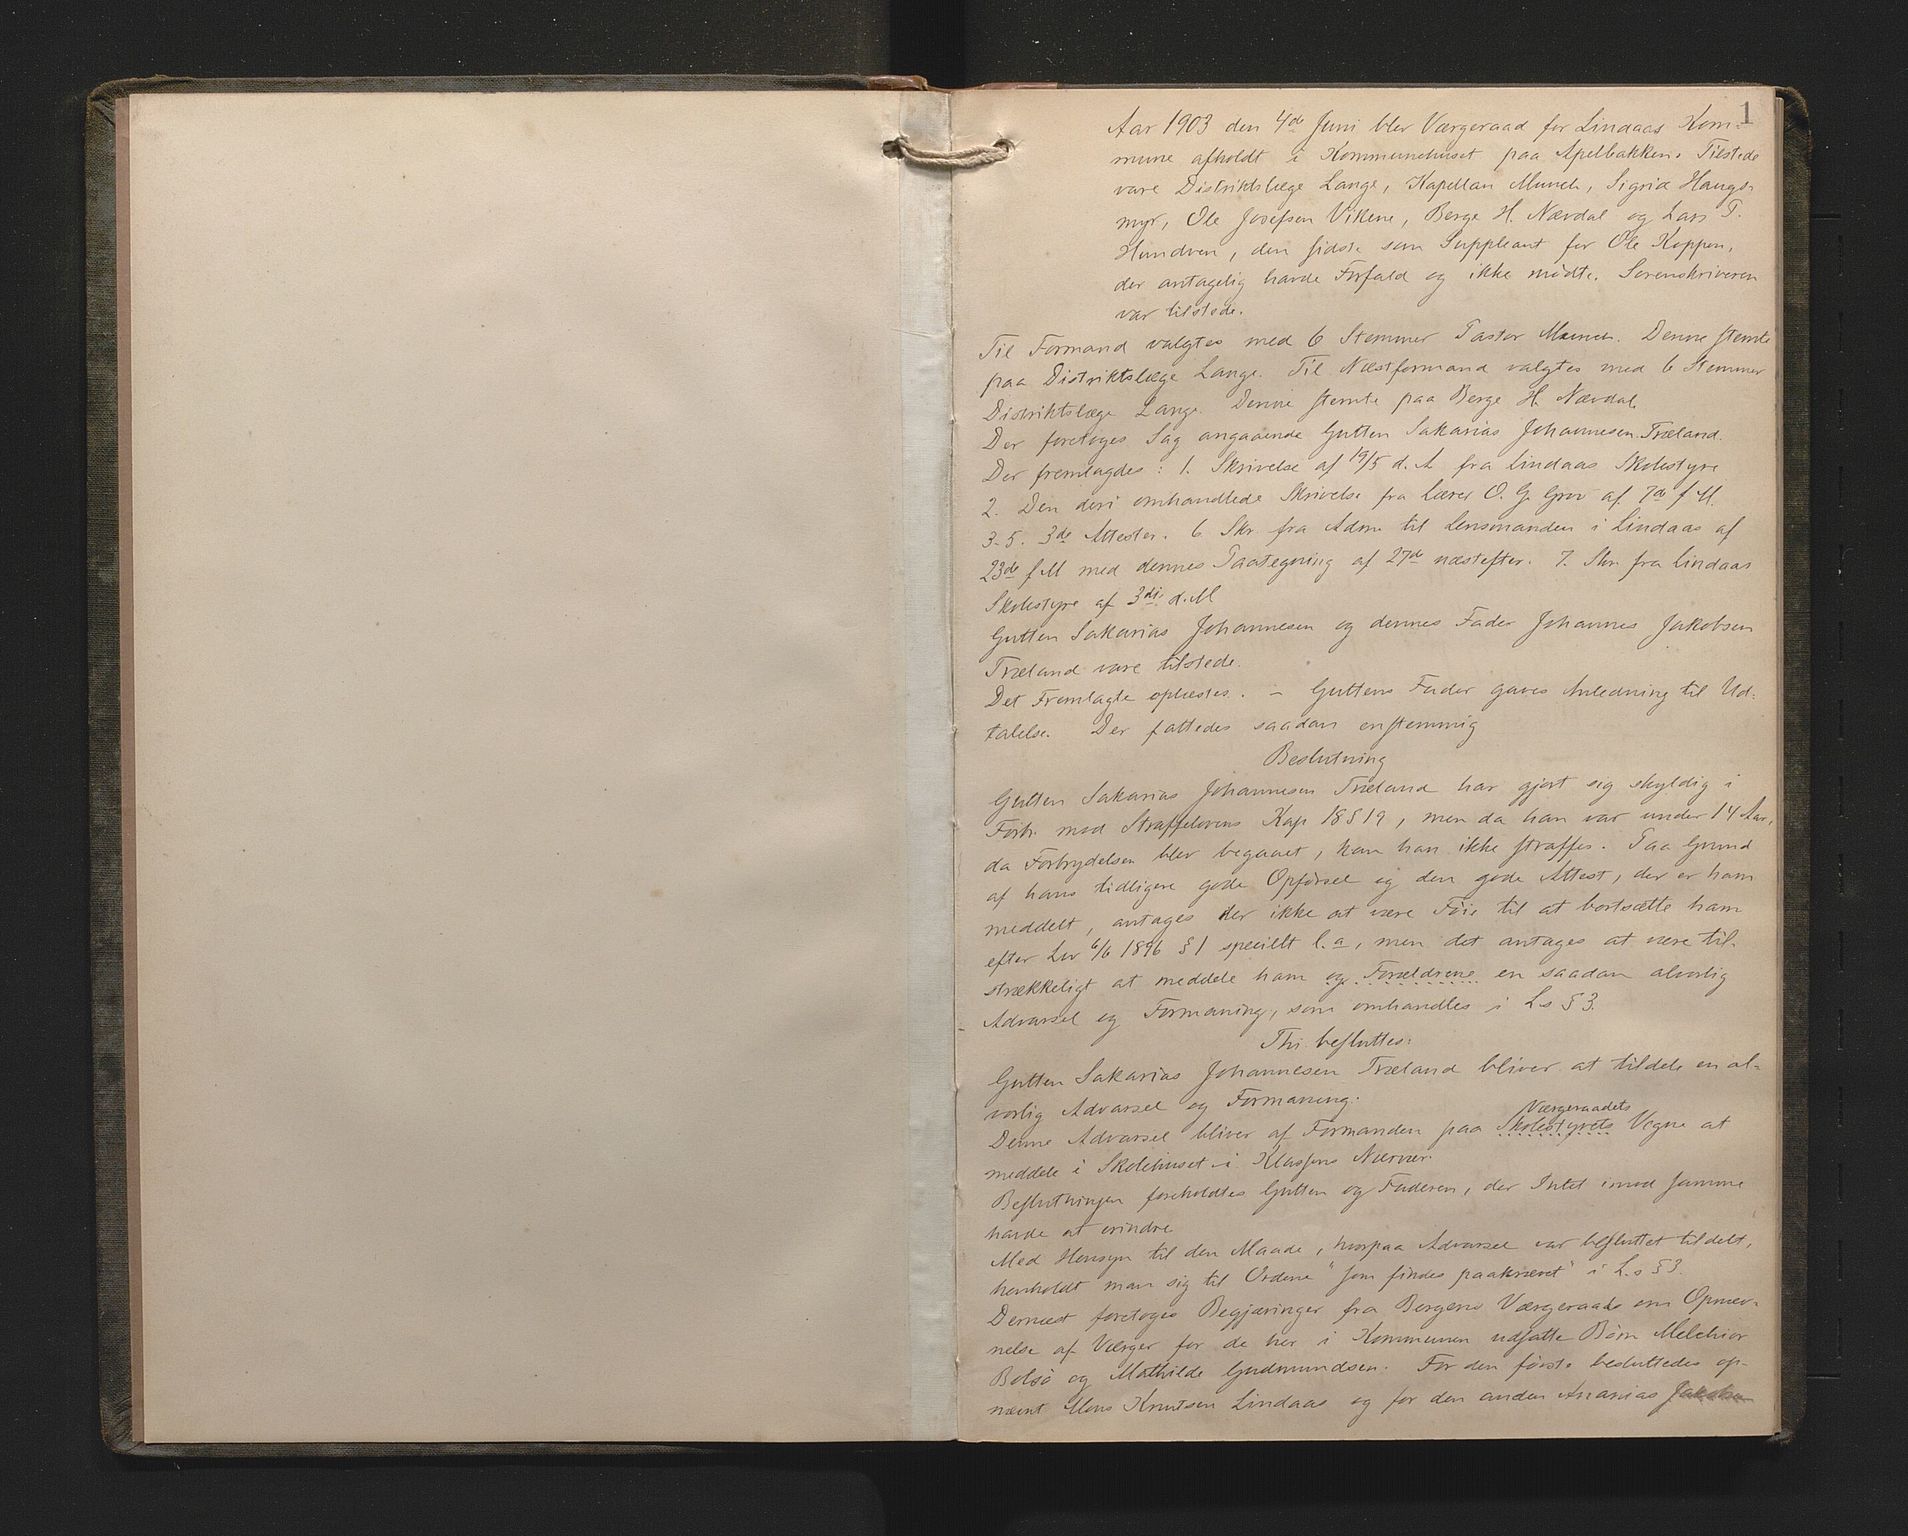 1
Aar 1903 den 4de Juni blev Værgeraad for Lindaas Kom-
mune afholdt i Kommunehuset paa Apelbakken. Tilstede
vare Distriktslæge Lange, Kapellan Munch, Sigrid Haugs-
myr, Ole Josefsen Vikene, Berge H. Nævdal og Lars T.
Hundven, den sidste som Suppleant for Ole Koppen,
der antagelig havde Forfald og ikke mødte. Sorenskriveren
var tilstede.
Til Formand valgtes med 6 Stemmer Pastor Munch. Denne stemte
paa Distriktslæge Lange. Til Næstformand valgtes med 6 Stemmer
Distriktslæge Lange. Denne stemte paa Berge H. Nævdal.
Der foretoges Sag angaaende Gutten Sakarias Johannesen Træland.
Der fremlagdes: 1. Skrivelse af 19/5 d. A. fra Lindaas Skolestyre
2. Den deri omhandlede Skrivelse fra Lærer O. G. Grov af 7de f. M.
3-5. 3de Attester. 6. Skr. fra Adm til Lensmanden i Lindaas af
23de f M med dennes Paategning af 27de næstefter. 7. Skr. fra Lindaas
Skolestyre af 3die d. M
Gutten Sakarias Johannesen og dennes Fader Johannes Jakobsen
Træland vare tilstede.
Det Fremlagte oplæstes. - Guttens Fader gaves Anledning til Ud-
talelse. Der fattedes saadan enstemmig
Beslutning
Gutten Sakarias Johannesen Træland har gjort sig skyldig i
Forbr. mod Straffelovens Kap 18 § 19, men da han var under 14 Aar,
da Forbrydelsen blev begaaet, kan han ikke straffes. Paa Grund
af hans tidligere gode Opførsel og den gode Attest, der er ham
meddelt, antages der ikke at være Føie til at bortsætte ham
efter Lov 6/6 1896 § 1 specielt l. a, men det antages at være til-
strækkeligt at meddele ham og Forældrene en saadan alvorlig
Advarsel og Formaning, som omhandles i L.s § 3.
Thi besluttes:
Gutten Sakarias Johannesen Træland bliver at tildele en al-
vorlig Advarsel og Formaning.
Værgeraadets
Denne Advarsel bliver af Formanden paa Skolestyrets Vegne at
meddele i Skolehuset i Klassens Nærvær.
Beslutningen foreholdtes Gutten og Faderen, der Intet imod samme
havde at erindre
Med Hensyn til den Maade, hvorpaa Advarsel var besluttet tildelt,
henholdt man sig til Ordene "som findes paakrævet" i L.s § 3.
Dernæst foretoges Begjæringer fra Bergens Værgeraad om Opnæv-
nelse af Værger for de her i Kommunen udsatte Børn Melchior
Bolsø og Mathilde Gudmundsen. For den første besluttedes op-
nævnt Mons Knutsen Lindaas og for den anden Ananias Jakobsen